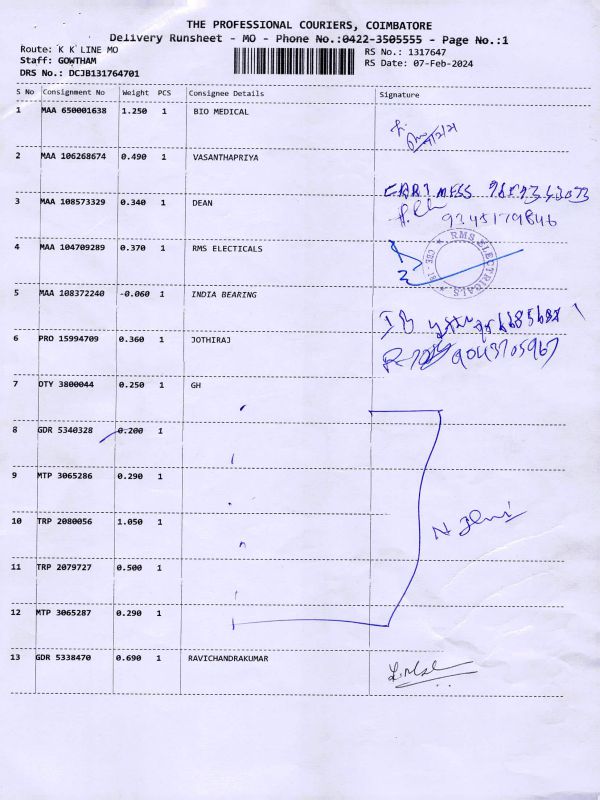 THE PROFESSIONAL COURIERS, COIMBATORE
Delivery Runsheet - MO - Phone No.:0422-3505555 - Page No.:1
Route: K K LINE MO
RS No.: 1317647
Staff: GOWTHAM
RS Date: 07-Feb-2024
DRS No.: DCJB131764701
S No Consignment No Weight PCS Consignee Details Signature
1 MAA 650001638 1.250 1 BIO MEDICAL
2 MAA 106268674 0.490 1 VASANTHAPRIYA
3 MAA 108573329 0.340 1 DEAN
9245179846
4 MAA 104709289 0.370 1 RMS ELECTICALS
RMS ELECTRICALS
5 MAA 108372240 -0.060 1 INDIA BEARING
6 PRO 15994709 0.360 1 JOTHIRAJ
9043705967
7 DTY 3800044 0.250 1 GH
8 GDR 5340328 0.200 1
9 MTP 3065286 0.290 1
10 TRP 2080056 1.050 1
11 TRP 2079727 0.500 1
12 MTP 3065287 0.290 1
13 GDR 5338470 0.690 1 RAVICHANDRAKUMAR